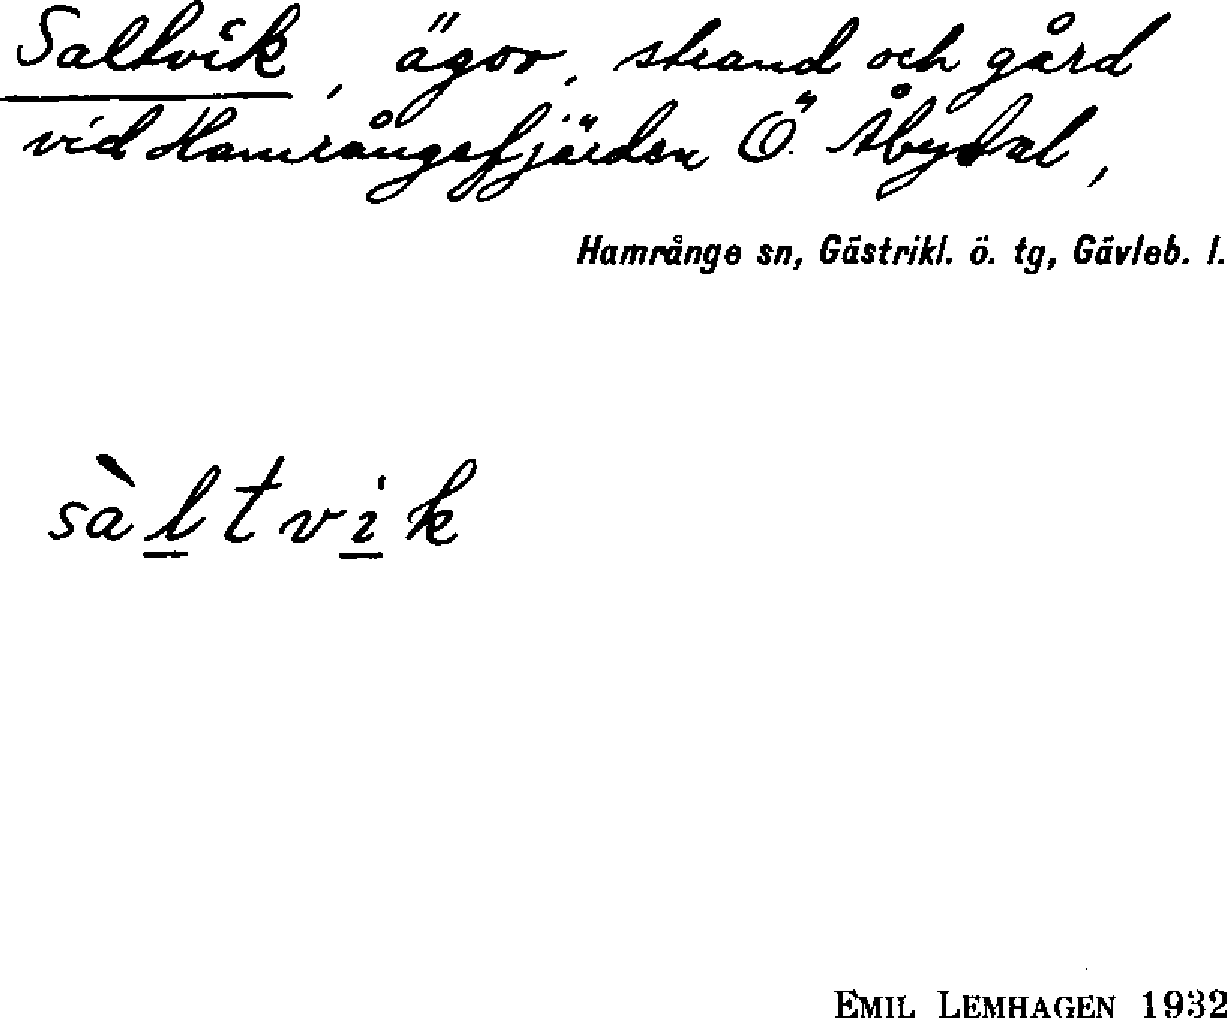 Saltvik, ägor, strand och gård
vid Hamrångefjärden Ö. Åbydal,
Hamrånge sn, Gästrikl. ö. tg, Gävleb. l.
sàltvik
EMIL LEMHAGEN 1932